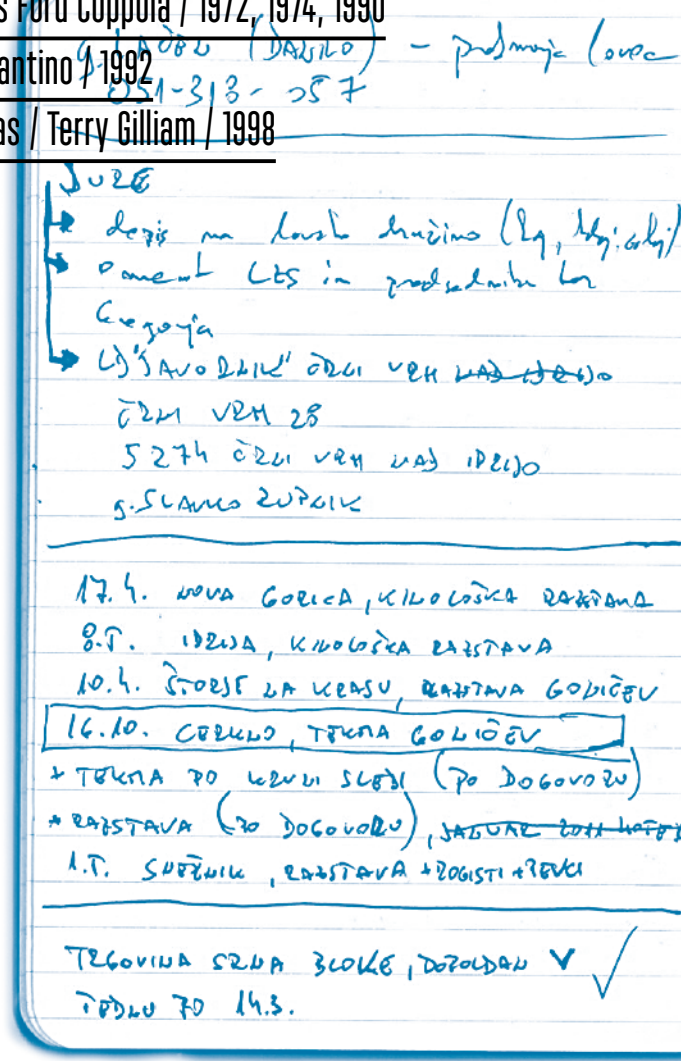 s Ford Coppola / 1972, 1974, 1990
(DANILO) -
antino / 1992
051-313-
as / Terry Gilliam / 1998
JURE
dopis na družino
LZS in predsednika
Gregorja
LD "JAVORNIK" ČRNI VRH NAD IDRIJO
ČRNI VRH 28
5274 ČRNI VRH NAD IDRIJO
g. SLAVKO ŽUPNIK
17.4. NOVA GORICA, KINOLOŠKA RAZSTAVA
8.5. IDRIJA, KINOLOŠKA RAZSTAVA
10.4. ŠTORJE NA KRASU, RAZSTAVA GONIČEV
16.10. CERKNO, TEKMA GONIČEV
+ TEKMA PO KRVNI SLEDI (PO DOGOVORU)
+ RAZSTAVA (PO DOGOVORU), JANUAR 2011
1.5. SNEŽNIK, RAZSTAVA + ROGISTI + PEVCI
TRGOVINA SRNA BLOKE, DOPOLDAN V
TEDNU PO 14.3.